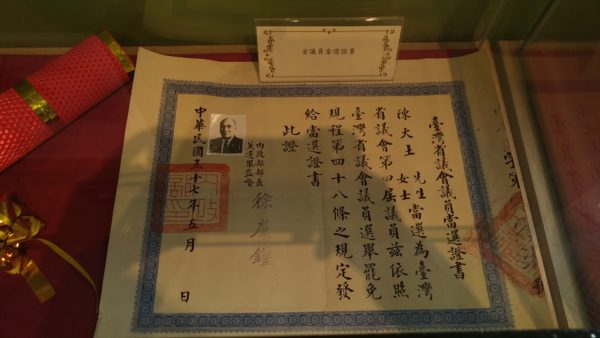 省議員當選證書
字第
號
臺灣省議會議員當選證書
陳火土先生女士當選為臺灣
省議會第四屆議員茲依照
臺灣省議會議員選舉罷免
規程第四十八條之規定發
給當選證書
此證
內政部部長
兼選舉監督
徐慶鐘
中華民國五十七年五月 日